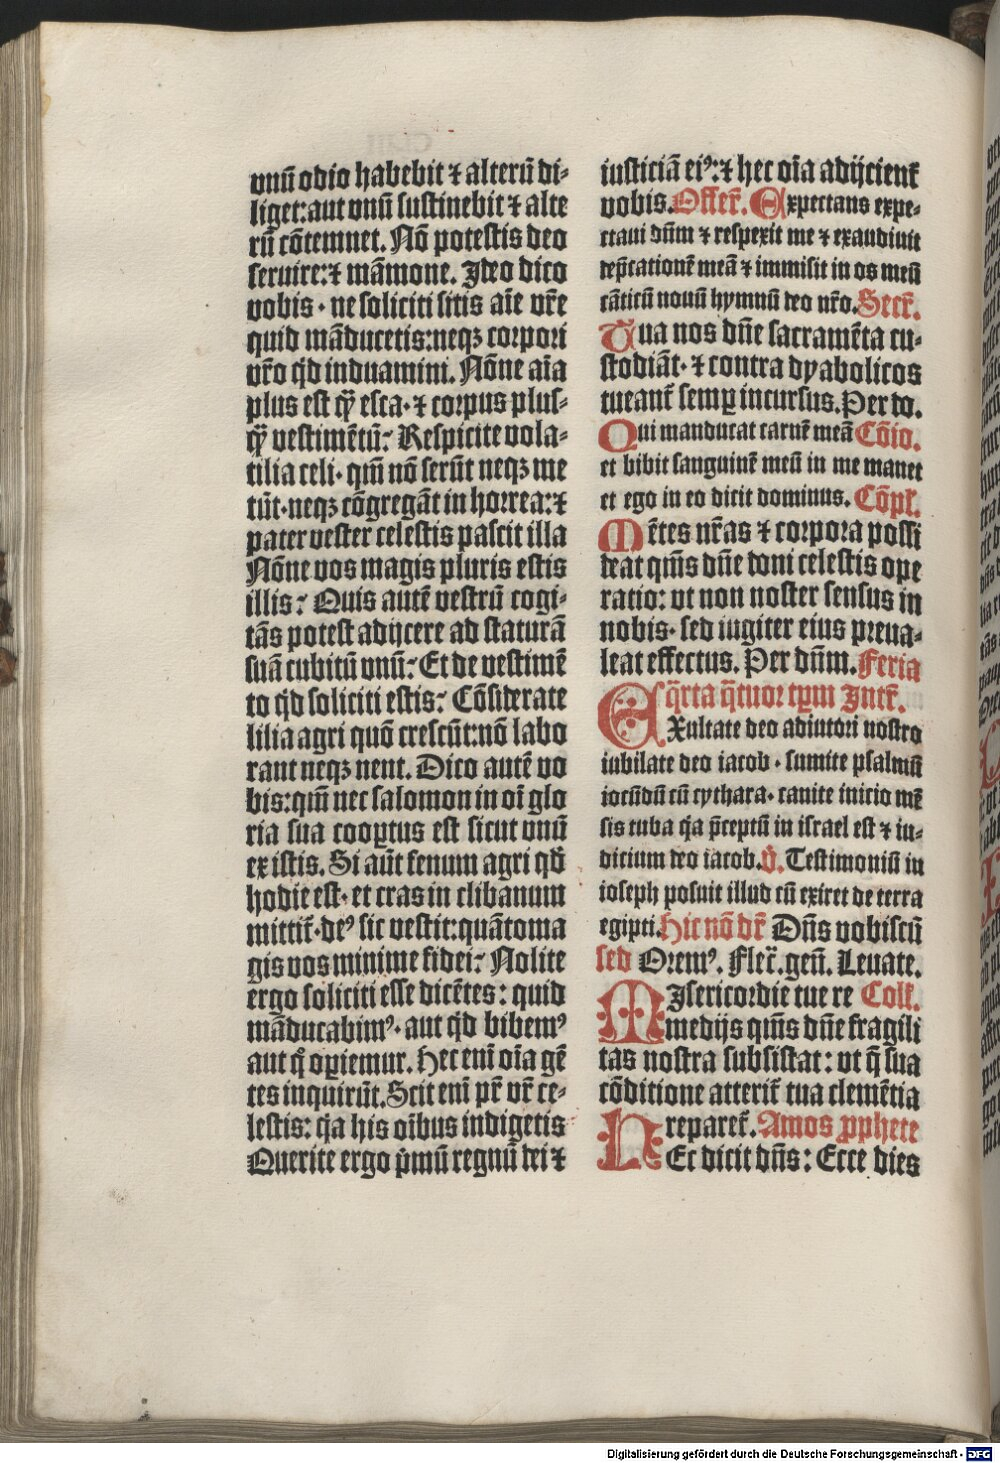 vnū odio habebit ⁊ alterū di-
liget: aut vnū sustinebit ⁊ alte
rū cōtemnet. Nō potestis deo
seruire: ⁊ māmone. Ideo dico
vobis · ne soliciti sitis aīe vr̄e
quid māducetis: neqꝫ corpori
vr̄o qd̄ induamini. Nōne aīa
plus est q̄ꝫ esca · ⁊ corpus plus-
q̄ꝫ vestimētū? Respicite vola-
tilia celi · qm̄ nō serūt neqꝫ me
tūt · neqꝫ cōgregāt in horrea: ⁊
pater vester celestis pascit illa
Nōne vos magis pluris estis
illis? Quis autē vestrū cogi-
tās potest adijcere ad staturā
suā cubitū vnū? Et de vestimē
to qd̄ soliciti estis? Cōsiderate
lilia agri quō crescūt: nō labo
rant neqꝫ nent. Dico autē vo
bis: qm̄ nec salomon in oī glo
ria sua cooꝑtus est sicut vnū
ex istis. Si aūt fenum agri qd̄
hodie est · et cras in clibanum
mittit̄ · deꝰ sic vestit: quāto ma
gis vos minime fidei? Nolite
ergo soliciti esse dicētes: quid
māducabimꝰ · aut qd̄ bibemꝰ
aut qͦ oꝑiemur. Hec enī oīa gē
tes inquirūt. Scit enī pr̄ vr̄ ce-
lestis: qa his oībus indigetis
Querite ergo pͥmū regnū dei ⁊
iusticiā eiꝰ: ⁊ hec oīa adijcient̄
vobis. Offer̄. Expectans expe-
ctaui dn̄m ⁊ respexit me ⁊ exaudiuit
dep̄cationē meā ⁊ immisit in os meū
cāticū nouū hymnū deo nr̄o. Secr̄.
Tua nos dn̄e sacramēta cu-
stodiāt · ⁊ contra dyabolicos
tueant̄ semꝑ incursus. Per do.
Qui manducat carnē meā Cōīo.
et bibit sanguinē meū in me manet
et ego in eo dicit dominus. Cōpl̄.
Mētes nr̄as ⁊ corpora possi
deat qm̄s dn̄e doni celestis ope
ratio: vt non noster sensus in
nobis · sed iugiter eius preua-
leat effectus. Per dn̄m. Feria
q̄rta q̄tuor tꝑm Intr̄.
EXultate deo adiutori nostro
iubilate deo iacob · sumite psalmū
iocūdū cū cythara · canite inicio mē
sis tuba qa p̄ceptū in israel est ⁊ iu-
dicium deo iacob. V̄. Testimoniū in
ioseph posuit illud cū exiret de terra
egipti. Hic nō dr̄ Dn̄s vobiscū
sed Oremꝰ. Flec̄. gen̄. Leuate.
MIsericordie tue re Coll̄.
medijs qm̄s dn̄e fragili
tas nostra subsistat: vt q̄ sua
cōditione atterit̄ tua clemētia
reparet̄. Amos ꝓphete
HEc dicit dn̄s: Ecce dies
Digitalisierung gefördert durch die Deutsche Forschungsgemeinschaft - DFG